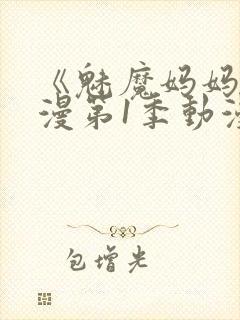 《魅魔妈妈
漫第1季動漫
包增光